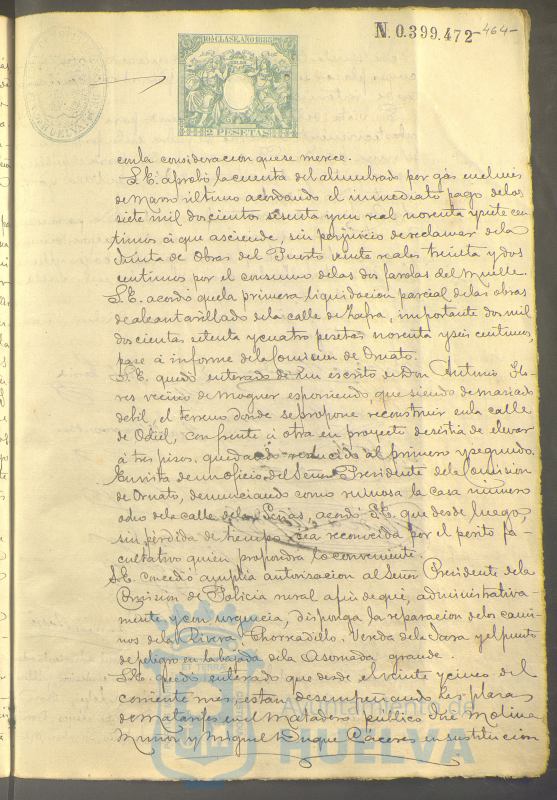 N. 0.399.472 -464-
10ª CLASE. AÑO 1888
2 PESETAS
HUELVA
con la consideracion que se merece.
S.E. aprobó la cuenta del alumbrado por gas en el mes
de Marzo último acordando el inmediato pago de los
siete mil doscientos sesenta y un real noventa y siete cen
timos á que asciende, sin perjuicio de reclamar de la
Junta de Obras del Puerto veinte reales treinta y dos
centimos por el consumo de las dos farolas del Muelle.
S.E. acordó que la primera liquidacion parcial de las obras
de alcantarillado de la calle de Zafra, importante dos mil
doscientas setenta y cuatro pesetas noventa y seis centimos,
pase á informe de la Comision de Ornato.
S.E. quedó enterado de un escrito de Don Antonio Flo
res vecino de Moguer exponiendo que, siendo demasiado
debil, el terreno donde se propone reconstruir en la calle
de Odiel, con frente á otra en proyecto desistia de elevar
á tres pisos, quedando reducido al primero y segundo.
En vista de un oficio del Señor Presidente de la Comision
de Ornato, denunciando como ruinosa la casa número
ocho de la calle de las Peñas, acordó S.E. que desde luego,
sin pérdida de tiempo, sea reconocida por el perito fa-
cultativo quien propondrá lo conveniente.
S.E. concedió amplia autorizacion al Señor Presidente de la
Comision de Policia rural a fin de que, administrativa-
mente y con urgencia, disponga la reparacion de los cami
nos de la Rivera, Chorradillo, Vereda de la Jara y el punto
de peligro en la bajada de la Asomada grande.
S.E. quedó enterado que desde el veinte y cinco del
corriente mes, estan desempeñando las plazas
de Matarifes en el Matadero público José Molina
Muñoz y Miguel Duque Cáceres en sustitucion
Ayuntamiento de
HUELVA